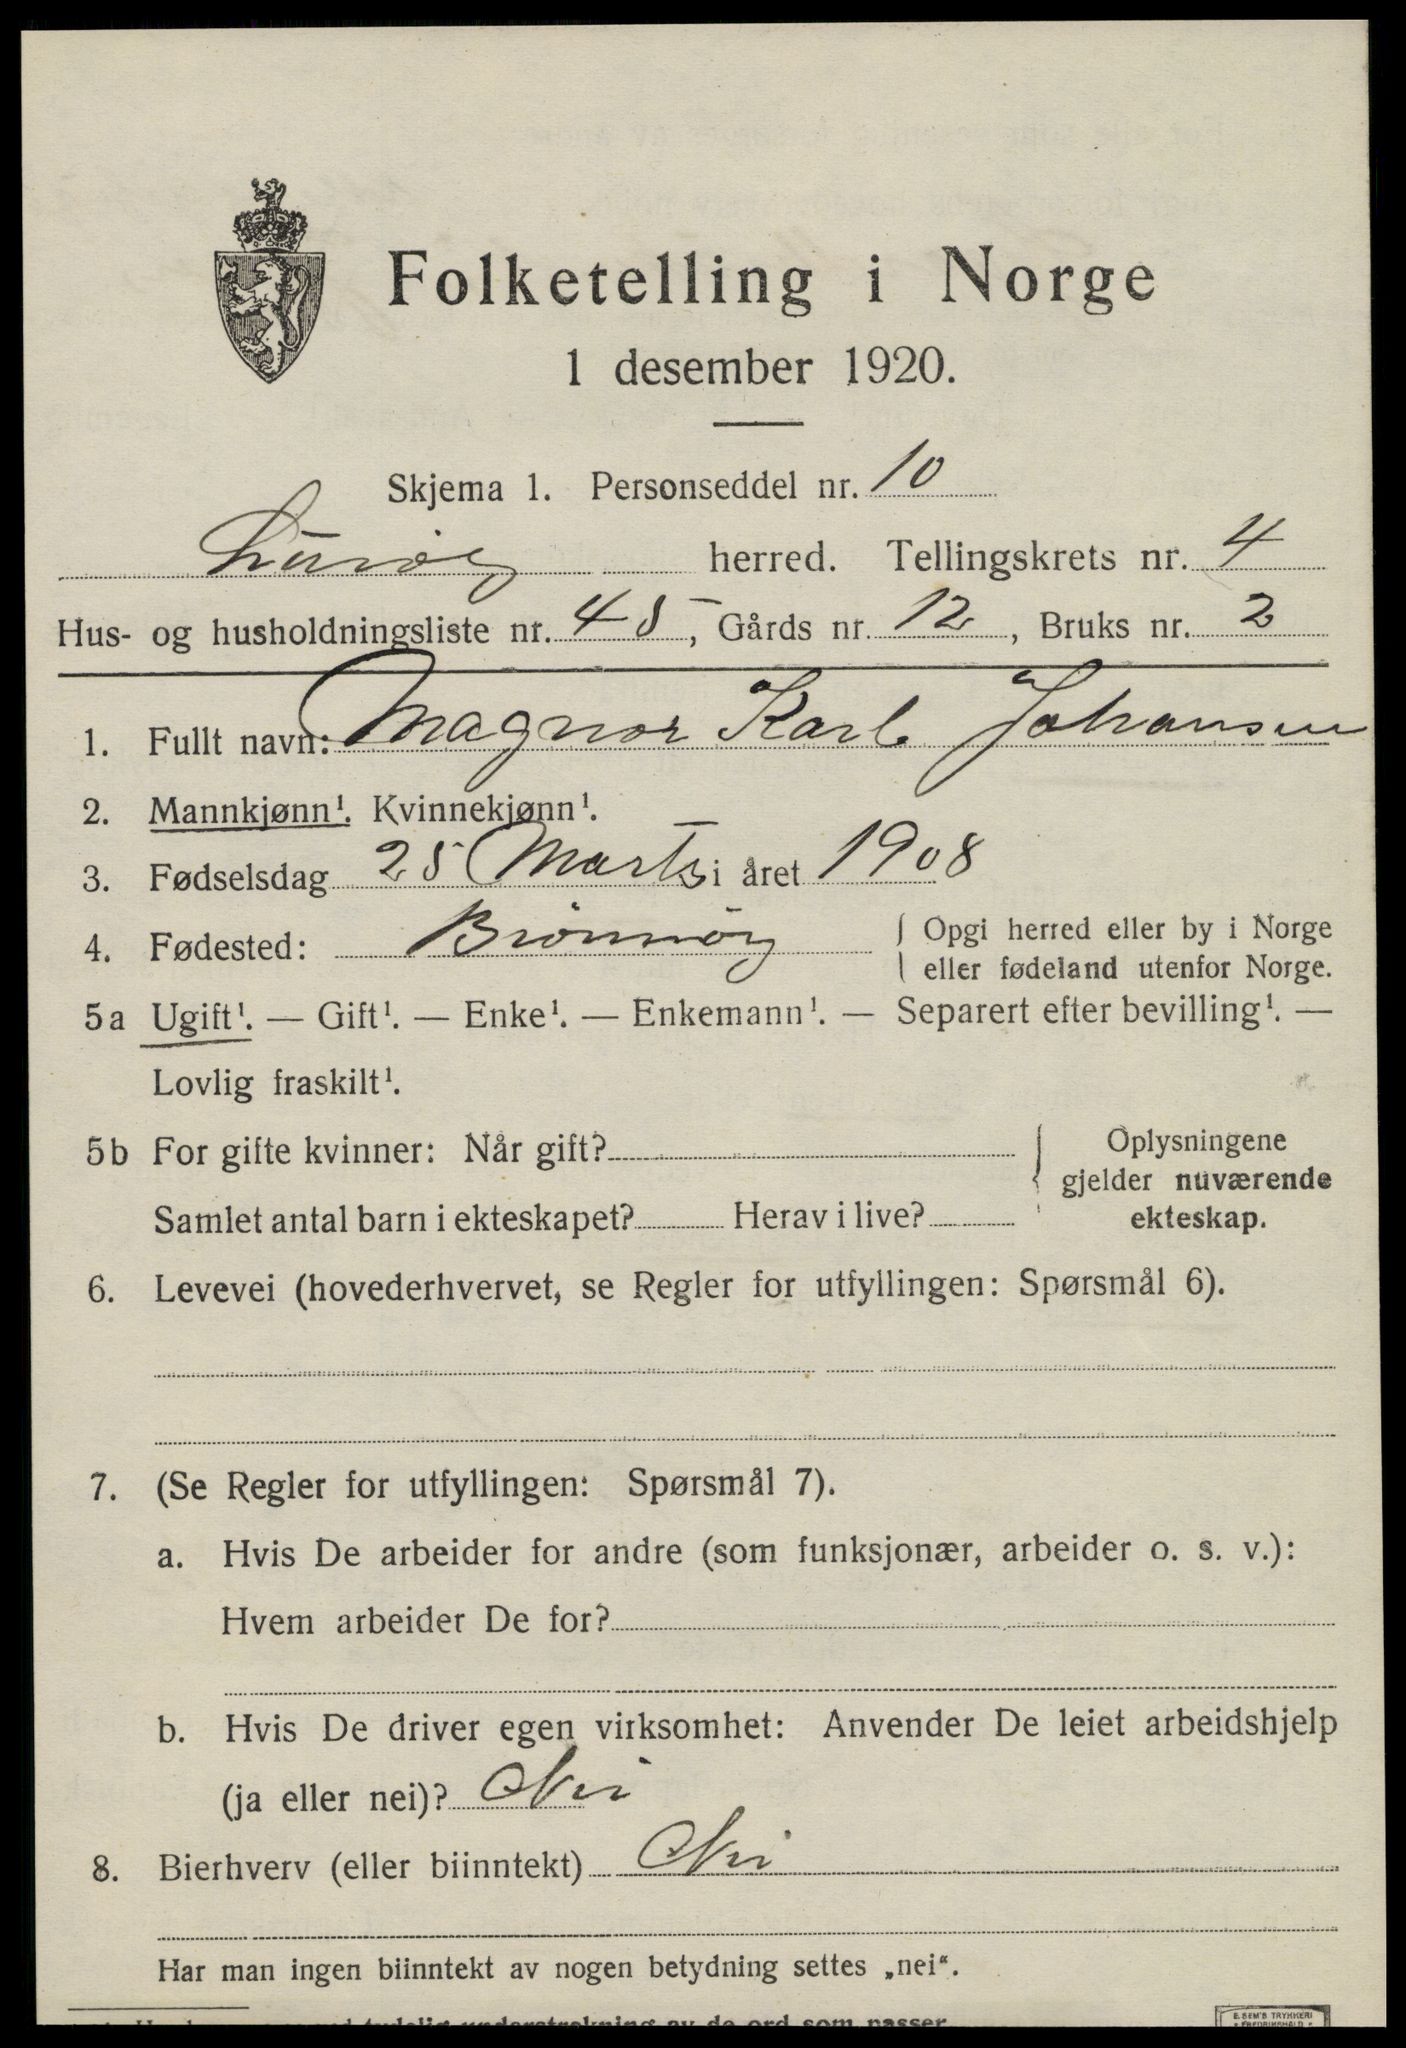 Folketelling i Norge
1 desember 1920.
Skjema 1. Personseddel nr. 10
Lurøy herred. Tellingskrets nr. 4
Hus- og husholdningsliste nr. 45, Gårds nr. 12, Bruks nr. 2
1. Fullt navn: Magnor Karl Johansen
2. Mannkjønn¹. Kvinnekjønn¹.
3. Fødselsdag 25 Marts i året 1908
4. Fødested: Brønnøy { Opgi herred eller by i Norge
eller fødeland utenfor Norge.
5a Ugift¹. — Gift¹. — Enke¹. — Enkemann¹. — Separert efter bevilling¹. —
Lovlig fraskilt¹.
5b For gifte kvinner: Når gift? { Oplysningene
gjelder nuværende
Samlet antal barn i ekteskapet? Herav i live? ekteskap.
6. Levevei (hovederhvervet, se Regler for utfyllingen: Spørsmål 6).
7. (Se Regler for utfyllingen: Spørsmål 7).
a. Hvis De arbeider for andre (som funksjonær, arbeider o. s. v.):
Hvem arbeider De for?
b. Hvis De driver egen virksomhet: Anvender De leiet arbeidshjelp
(ja eller nei)? Nei
8. Bierhverv (eller biinntekt) Nei
Har man ingen biinntekt av nogen betydning settes „nei“.
tydelig understrekning av de ord som passer
E. SEM'S TRYKKERI
FREDRIKSHALD